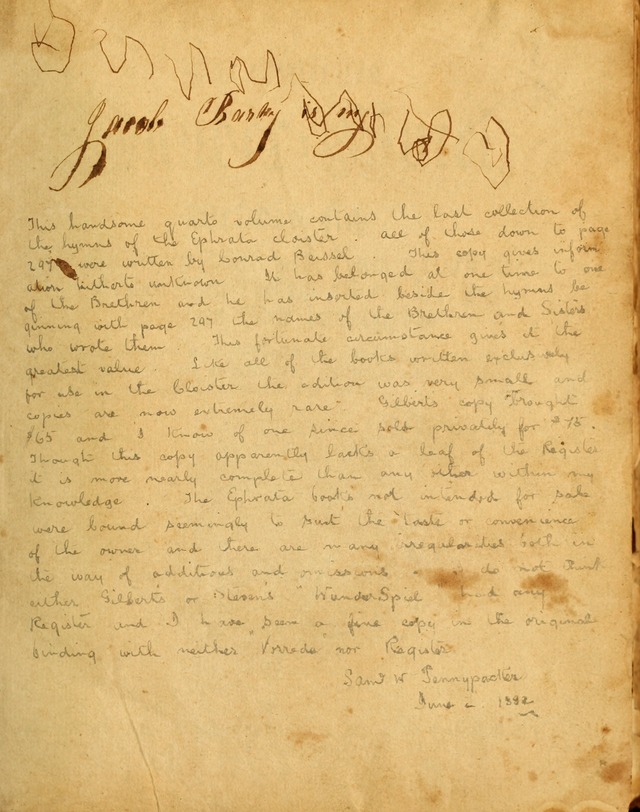 Jacob
This handsome quarto volume contains the last collection of
the hymns of the Ephrata cloister. All of those down to page
297 were written by Conrad Beissel. This copy gives inform
ation hitherto unknown It has belonged at one time to one
of the Brethren and he has inserted beside the hymns be
ginning with page 297 the names of the Brethren and Sisters
who wrote them This fortunate circumstance gives it the
greatest value. Like all of the books written exclusively
for use in the Cloister the edition was very small and
copies are now extremely rare. Gilberts copy brought
$65 and I know of one since sold privately for $75.
Though this copy apparently lacks a leaf of the Register
it is more nearly complete than any other within my
knowledge. The Ephrata books not intended for sale
were bound seemingly to suit the taste or convenience
of the owner and there are many irregularities both in
the way of additions and omissions. I do not think
either Gilberts or Stevens "WunderSpiel" had any
Register and I have seen a fine copy in the original
binding with neither "Vorrede" nor Register
Saml W Pennypacker
June 2 1882